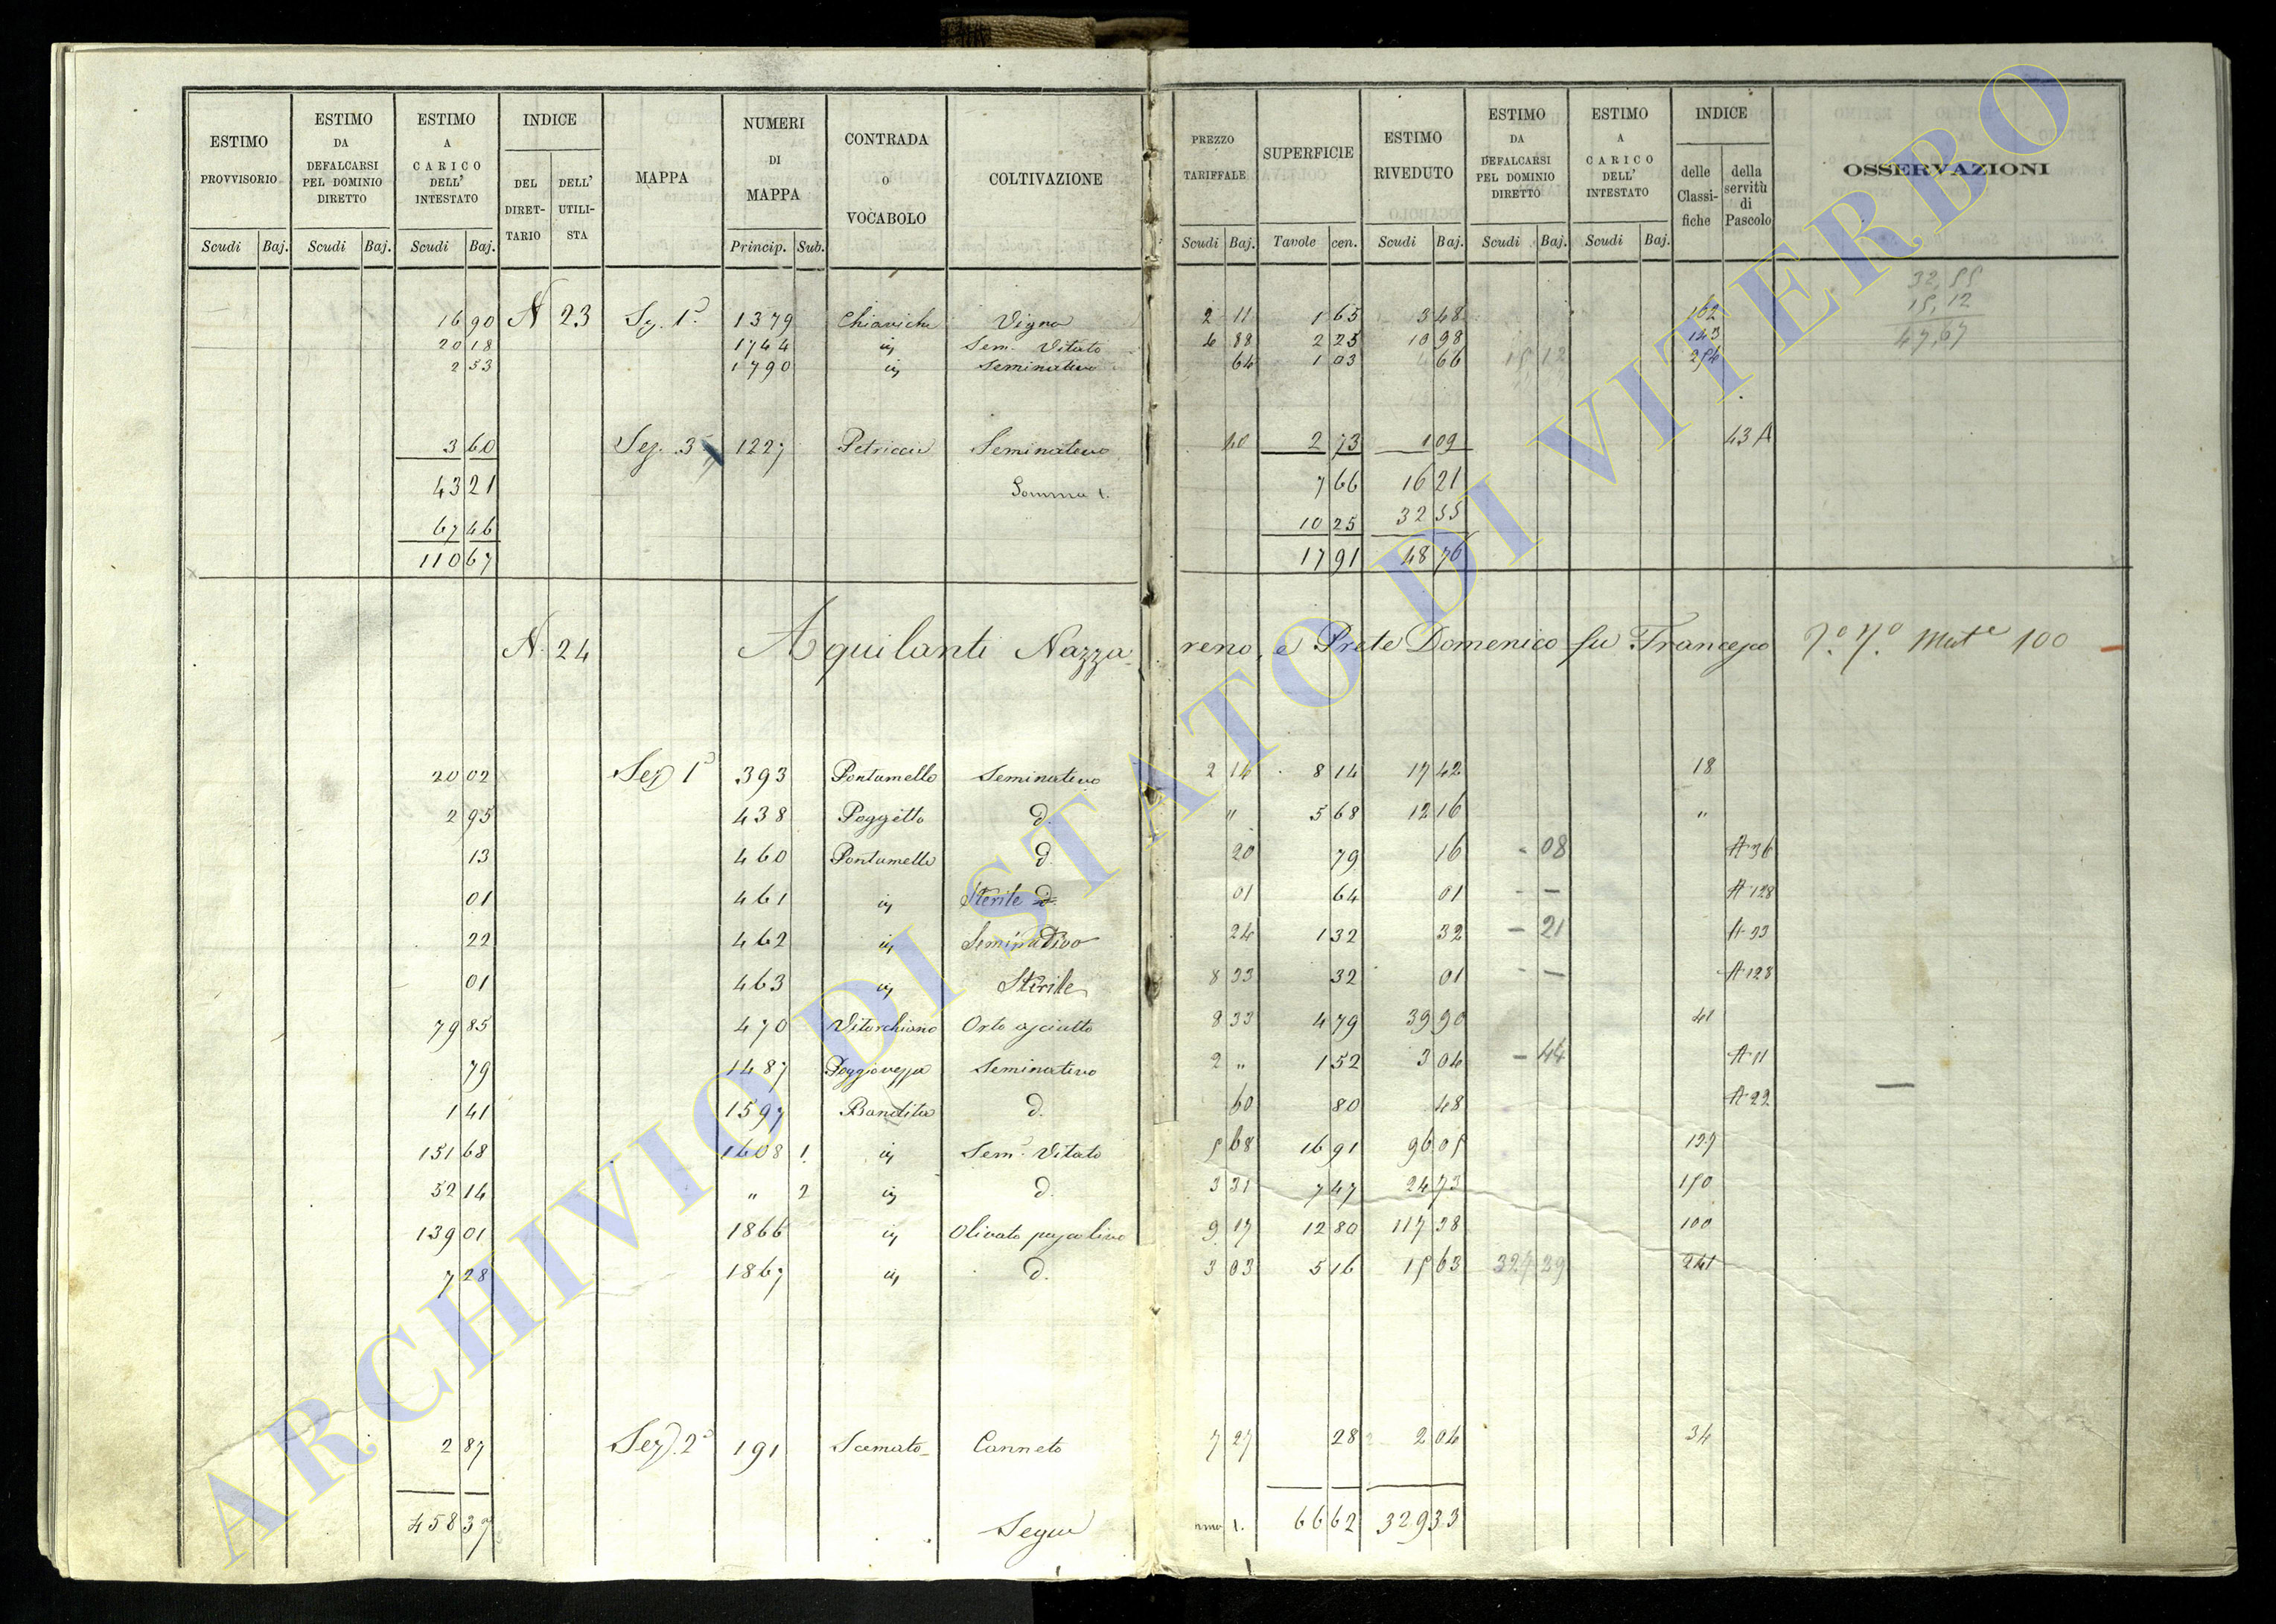 ESTIMO PROVVISORIO | ESTIMO DA DEFALCARSI PEL DOMINIO DIRETTO | ESTIMO A CARICO DELL' INTESTATO | INDICE DEL DIRETTARIO | DELL' UTILISTA | MAPPA | NUMERI DI MAPPA | CONTRADA O VOCABOLO | COLTIVAZIONE | PREZZO TARIFFALE | SUPERFICIE | ESTIMO RIVEDUTO | ESTIMO DA DEFALCARSI PEL DOMINIO DIRETTO | ESTIMO A CARICO DELL' INTESTATO | INDICE delle Classifiche | della servitù di Pascolo | OSSERVAZIONI
Scudi Baj. | Scudi Baj. | Scudi Baj. | Princip. Sub. | Scudi Baj. | Tavole cen. | Scudi Baj. | Scudi Baj. | Scudi Baj.
32,55
15,12
47,67
16 90 N 23 Sez. 1ª 1379 Chiaviche Vigna 2 11 1 65 3 48 162
20 18 1744 Sem. Vitato 4 88 2 25 10 98 143
2 53 1790 Seminativo 64 1 03 66 15 12 254
3 60 Sez. 3 1227 Petriccia Seminativo 40 2 73 1 09 43 A
43 21 Somma 1. 7 66 16 21
67 46 10 25 32 55
110 67 17 91 48 76
N. 24 Aquilanti Nazzareno, e Prete Domenico fu Francesco 100
20 02 Sez 1ª 393 Pontamello Seminativo 2 14 8 14 17 42 18
2 95 438 Poggetto d. " 5 68 12 16 "
13 460 Pontamello d. 20 79 16 - 08 A 36
01 461 Sterile d. 01 64 01 - — A 128
22 462 Seminativo 24 1 32 32 - 21 A 33
01 463 Sterile 8 33 32 01 - — A 128
79 85 470 Vitorchiano Orto asciutto 8 33 4 79 39 90 41
79 1487 Seminativo 2 " 1 52 3 04 - 44 A 11
1 41 1597 Bandita d. 60 80 48 A 22
151 68 1608 1. Sem. Vitato 5 68 16 91 96 05 127
52 14 " 2 d. 3 31 7 47 24 73 150
139 01 1866 Olivato pascolivo 9 17 12 80 117 38 100
7 28 1867 d. 3 03 5 16 15 63 327 29 241
2 87 Sez. 2ª 191 Scamato Canneto 7 27 28 2 04 34
458 37 Segue 1. 66 62 329 33
ARCHIVIO DI STATO DI VITERBO